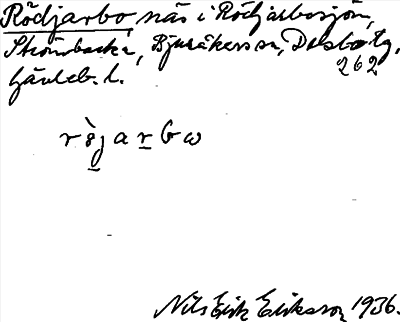 Rödjarbo näs i Rödjarbosjön,
Strömbacka, Bjuråkers sn, Delsbo tg,
262
Gävleb. l.
r ö̀ j a r b ω
Nils Erik Eriksson 1936.